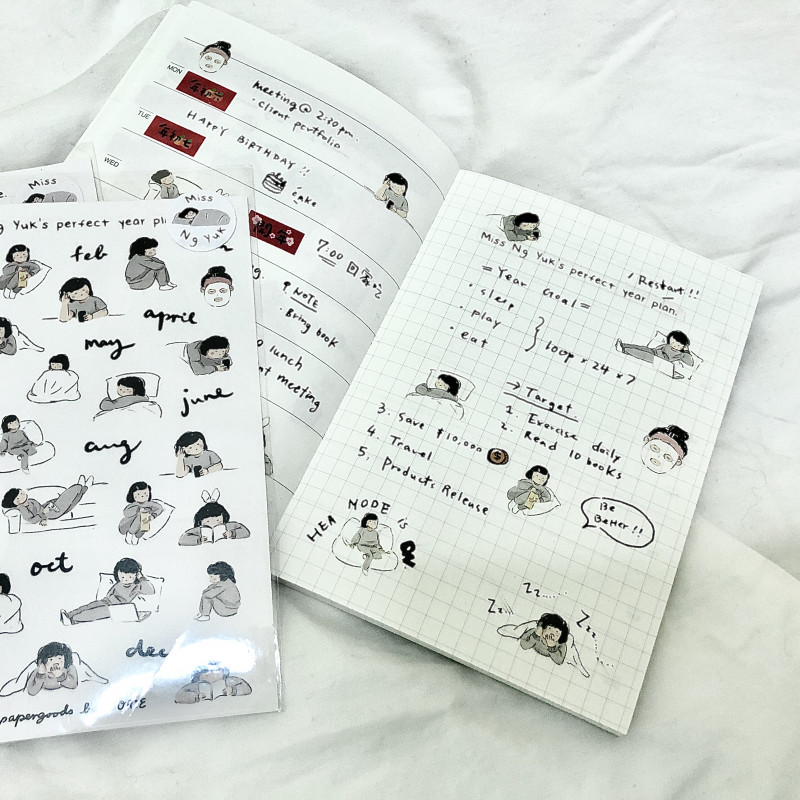 MON
年初六
meeting @ 2:30 pm.
· client portfolio
TUE
年初七
HAPPY BIRTHDAY !!
cake
WED
7:00
NOTE
· Bring book
lunch
meeting
Miss
Miss
Ng Yuk
Yuk's perfect year
feb
april
may
june
aug
oct
dec
papergoods
Miss Ng Yuk's perfect year plan.
! Restart !!
= Year Goal =
· sleep
· play
· eat
loop × 24 × 7
→ Target
1. Exercise daily
2. Read 10 books
3. Save $10,000
4. Travel
5. Products Release
Be
Better !!
HEA NODE is
Zz...
Zz.....
Zzz...